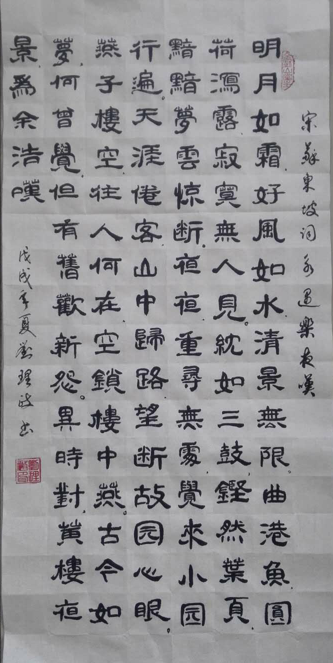 宋蘇東坡词永遇樂夜嘆
明月如霜好風如水清景無限曲港魚圓
荷瀉露寂寞無人見紞如三鼓鏗然葉頁
黯黯夢雲惊断夜夜重尋無處覺來小园
行遍天涯倦客山中歸路望断故园心眼
燕子樓空佳人何在空鎖樓中燕古今如
夢何曾覺但有舊歡新怨異時對黄樓夜
景為余浩嘆
戊戌年夏劉理政书